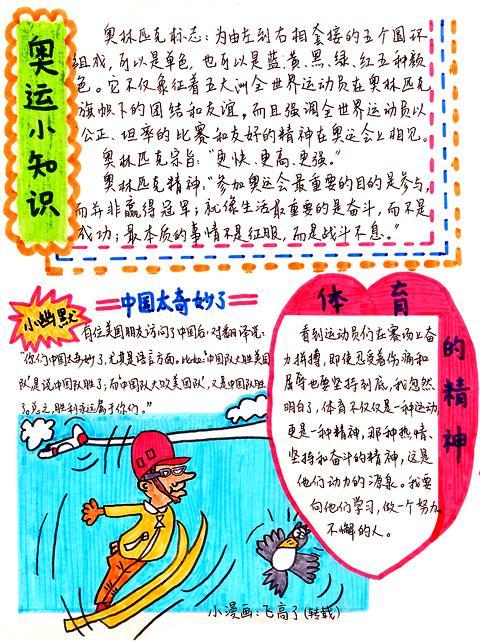 奥运小知识
奥林匹克标志：为由左到右相套接的五个圆环
组成，可以是单色，也可以是蓝、黄、黑、绿、红五种颜
色。它不仅象征着五大洲全世界运动员在奥林匹克
旗帜下的团结和友谊，而且强调全世界运动员以
公正、坦率的比赛和友好的精神在奥运会上相见。
奥林匹克宗旨：“更快、更高、更强。”
奥林匹克精神：“参加奥运会最重要的目的是参与，
而并非赢得冠军；就像生活最重要的是奋斗，而不是
成功；最本质的事情不是征服，而是战斗不息。”
小幽默
中国太奇妙了
有位美国朋友访问了中国后，对翻译说：
“你们中国太奇妙了，尤其是语言方面。比如：‘中国队大胜美国
队’，是说中国队胜了；而‘中国队大败美国队’，又是中国队胜
了。总之，胜利永远属于你们。”
体育的精神
看到运动员们在赛场上奋
力拼搏，即使忍受着伤痛和
屈辱也要坚持到底，我忽然
明白了，体育不仅仅是一种运动，
更是一种精神，那种热情、
坚持和奋斗的精神，这是
他们动力的源泉。我要
向他们学习，做一个努力
不懈的人。
小漫画：飞高了(转载)